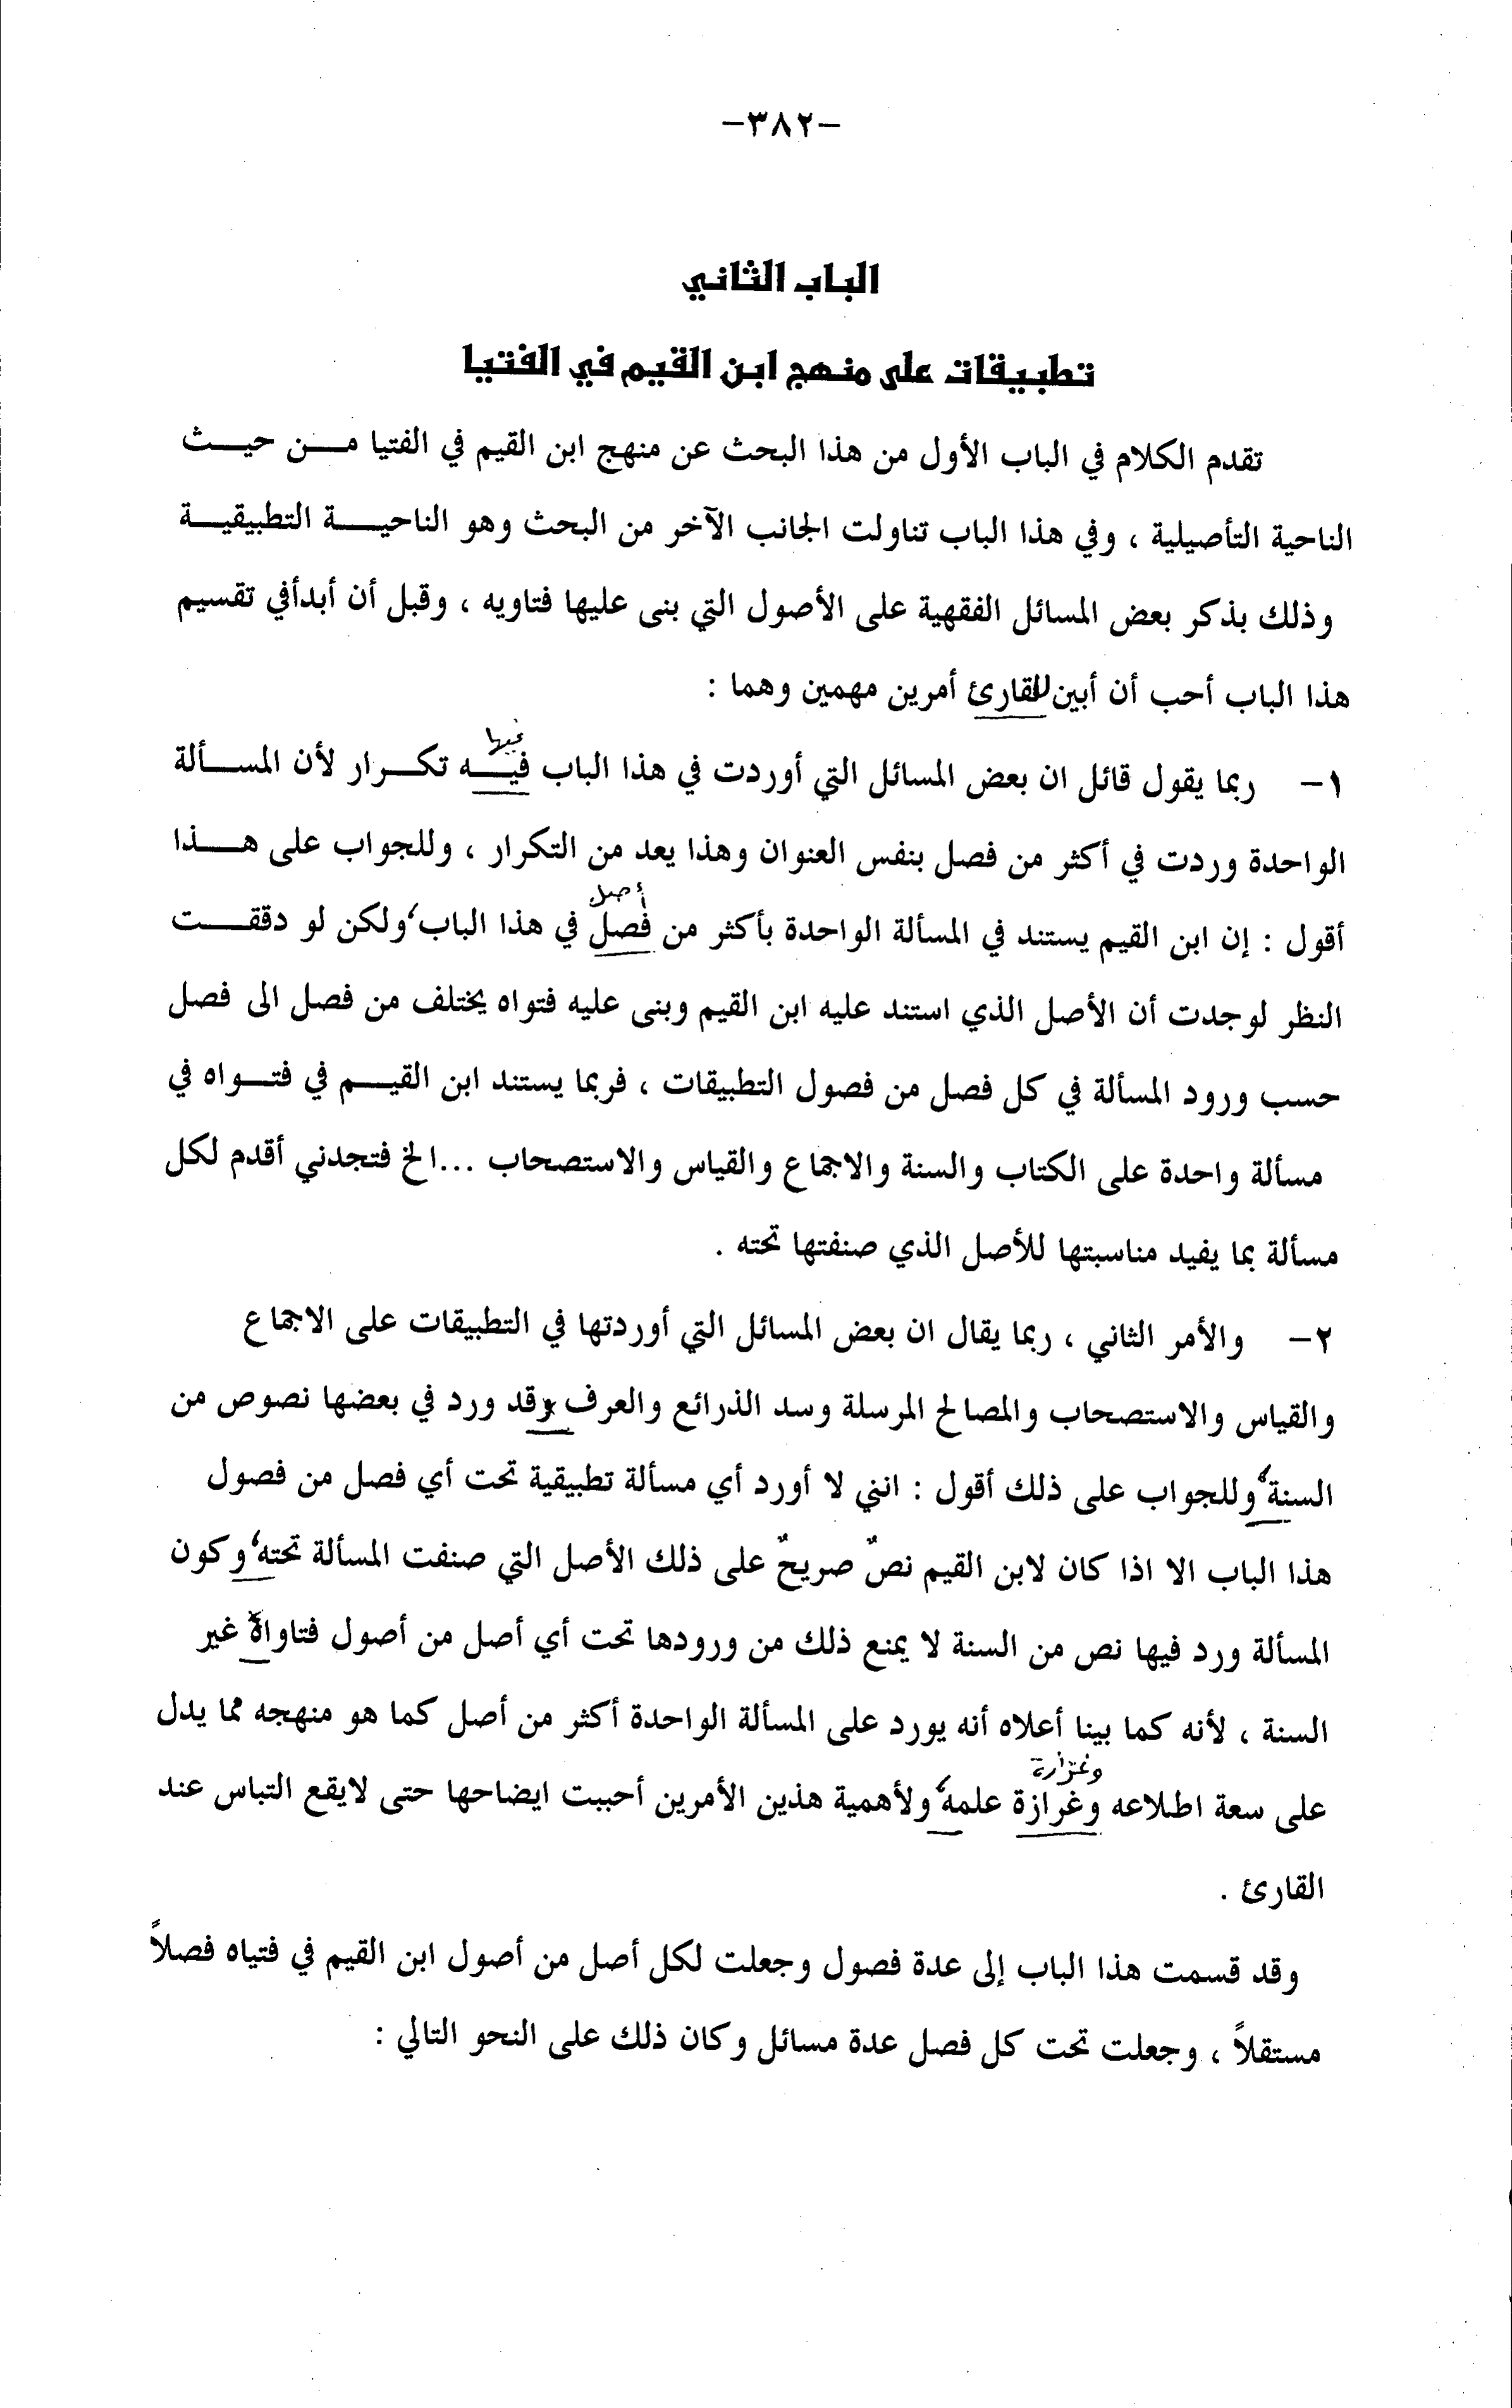 -٣٨٢-
الباب الثاني
تطبيقات على منهج ابن القيم في الفتيا
تقدم الكلام في الباب الأول من هذا البحث عن منهج ابن القيم في الفتيا مـــن حيـــث
الناحية التأصيلية ، وفي هذا الباب تناولت الجانب الآخر من البحث وهو الناحيـــة التطبيقيـــة
وذلك بذكر بعض المسائل الفقهية على الأصول التي بنى عليها فتاويه ، وقبل أن أبدأفي تقسيم
هذا الباب أحب أن أبين للقارئ أمرين مهمين وهما :
فيها
١- ربما يقول قائل ان بعض المسائل التي أوردت في هذا الباب فيـــه تكـــرار لأن المســـألة
الواحدة وردت في أكثر من فصل بنفس العنوان وهذا يعد من التكرار ، وللجواب على هـــذا
أصل
أقول : إن ابن القيم يستند في المسألة الواحدة بأكثر من فصل في هذا الباب، ولكن لو دققـــت
النظر لوجدت أن الأصل الذي استند عليه ابن القيم وبنى عليه فتواه يختلف من فصل الى فصل
حسب ورود المسألة في كل فصل من فصول التطبيقات ، فربما يستند ابن القيـــم في فتـــواه في
مسألة واحدة على الكتاب والسنة والاجماع والقياس والاستصحاب ...الخ فتجدني أقدم لكل
مسألة بما يفيد مناسبتها للأصل الذي صنفتها تحته .
٢- والأمر الثاني ، ربما يقال ان بعض المسائل التي أوردتها في التطبيقات على الاجماع
والقياس والاستصحاب والمصالح المرسلة وسد الذرائع والعرف وقد ورد في بعضها نصوص من
السنة، وللجواب على ذلك أقول : انني لا أورد أي مسألة تطبيقية تحت أي فصل من فصول
هذا الباب الا اذا كان لابن القيم نصٌ صريحٌ على ذلك الأصل التي صنفت المسألة تحته، وكون
المسألة ورد فيها نص من السنة لا يمنع ذلك من ورودها تحت أي أصل من أصول فتاواه غير
السنة ، لأنه كما بينا أعلاه أنه يورد على المسألة الواحدة أكثر من أصل كما هو منهجه مما يدل
وغزارة
على سعة اطلاعه وغرازة علمه، ولأهمية هذين الأمرين أحببت ايضاحها حتى لايقع التباس عند
القارئ .
وقد قسمت هذا الباب إلى عدة فصول وجعلت لكل أصل من أصول ابن القيم في فتياه فصلاً
مستقلاً ، وجعلت تحت كل فصل عدة مسائل وكان ذلك على النحو التالي :